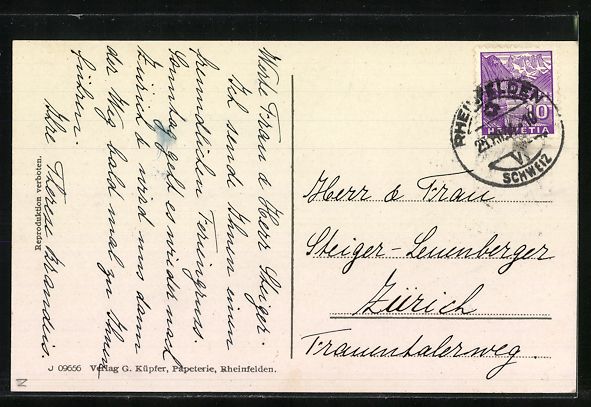 Werte Frau & Herr Steiger.
Ich sende Ihnen einen
freundlichen Feriengruss.
Samstag geht es wieder nach
Zürich & wird uns dann
der Weg bald mal zu Ihnen
führen.
Ihre Therese Brandeis.
Reproduktion verboten.
J 09656 Verlag G. Küpfer, Papeterie, Rheinfelden.
10
HELVETIA
RHEINFELDEN
SCHWEIZ
Herr & Frau
Steiger-Leuenberger
Zürich
Frauentalerweg.